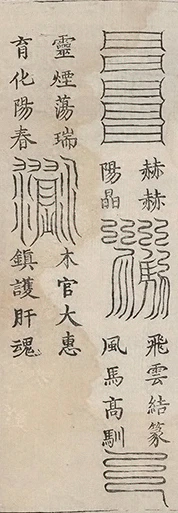 赫赫
陽晶
飛雲結篆
風馬高馴
靈煙蕩瑞
育化陽春
木官大惠
鎮護肝魂